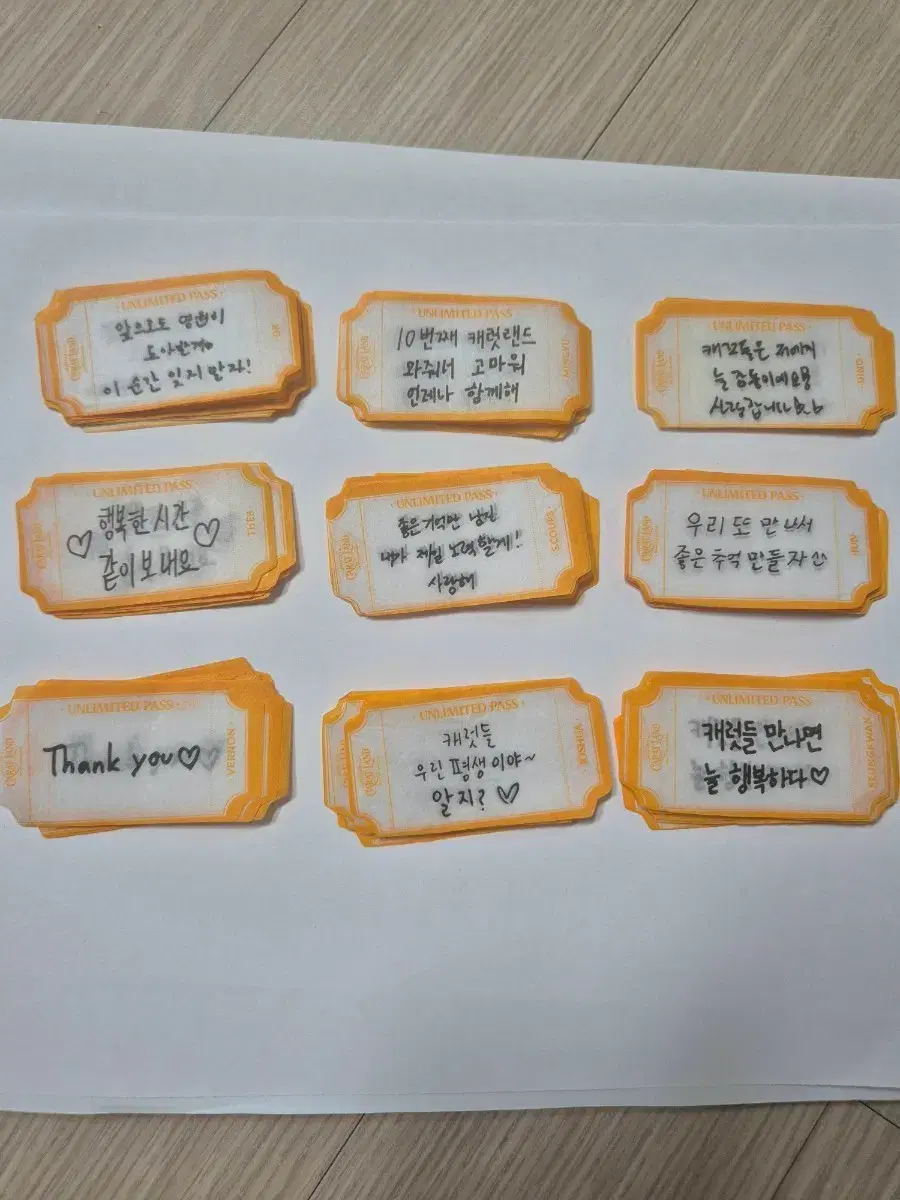 UNLIMITED PASS
앞으로도 영원히
이 순간 잊지 말자!
CARAT LAND
UNLIMITED PASS
10번째 캐럿랜드
와줘서 고마워
언제나 함께해
CARAT LAND
MINGYU
UNLIMITED PASS
캐럿들은
늘
사랑합니다
CARAT LAND
DINO
UNLIMITED PASS
행복한 시간
♡ 같이 보내요 ♡
CARAT LAND
THE8
UNLIMITED PASS
좋은 기억만 남길
내가 제일 노력할게!
사랑해
CARAT LAND
S.COUPS
UNLIMITED PASS
우리 또 만나서
좋은 추억 만들자
CARAT LAND
JUN
UNLIMITED PASS
Thank you♡
VERNON
UNLIMITED PASS
캐럿들
우린 평생이야~
알지? ♡
CARAT LAND
JOSHUA
UNLIMITED PASS
캐럿들 만나면
늘 행복하다♡
CARAT LAND
SEUNGKWAN